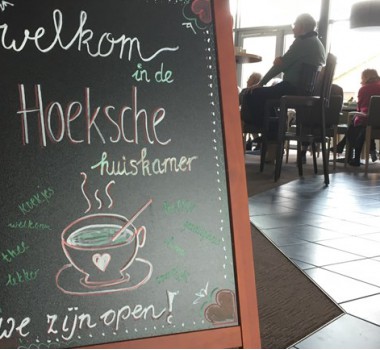 welkom
in de
Hoeksche
huiskamer
koekjes
welkom
thee
lekker
we zijn open!